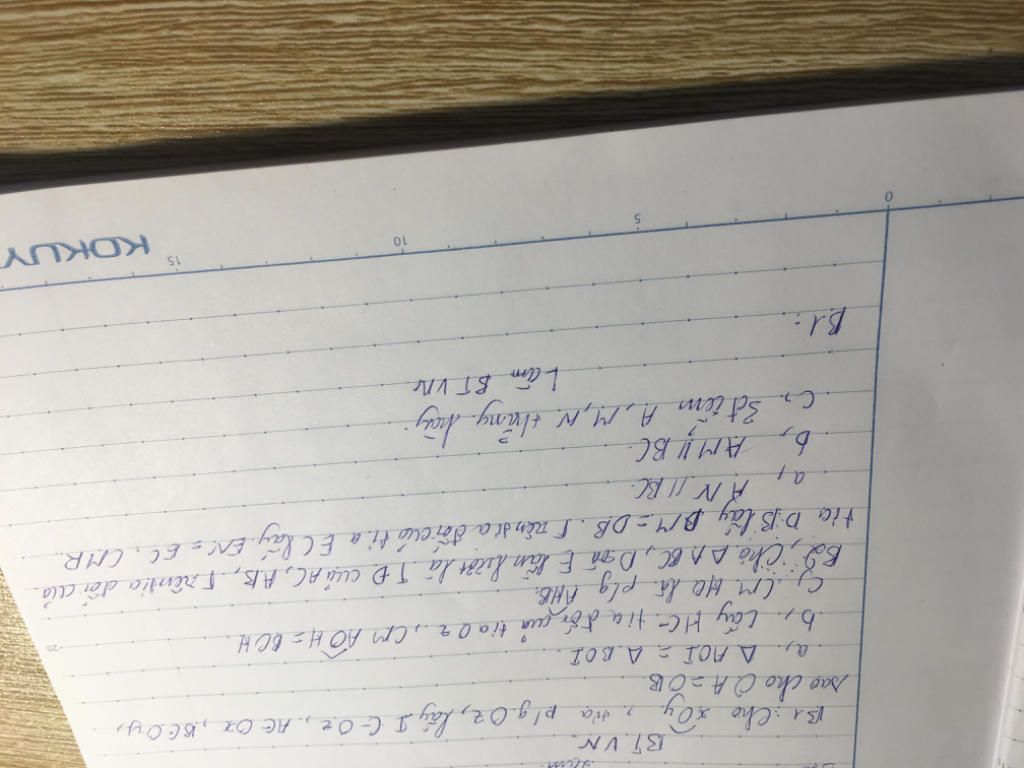 BTVN.
B1: Cho xOy, tia plg Oz, lấy I ∈ Oz, A ∈ Ox, B ∈ Oy,
sao cho OA = OB.
a, Δ AOI = Δ BOI
b, Lấy H ∈ tia đối của tia Oz, CM AOH = BOH
c, CM HO là plg AHB.
B2, Cho Δ ABC, D và E lần lượt là TĐ của AC, AB, Trên tia đối của
tia DB lấy BM = DB. Trên tia đối của tia EC lấy EN = EC. CMR
a, AN // BC.
b, AM // BC.
c, 3 điểm A, M, N thẳng hàng
Làm BTVN
B1:
0 5 10 15
20
KOKUY